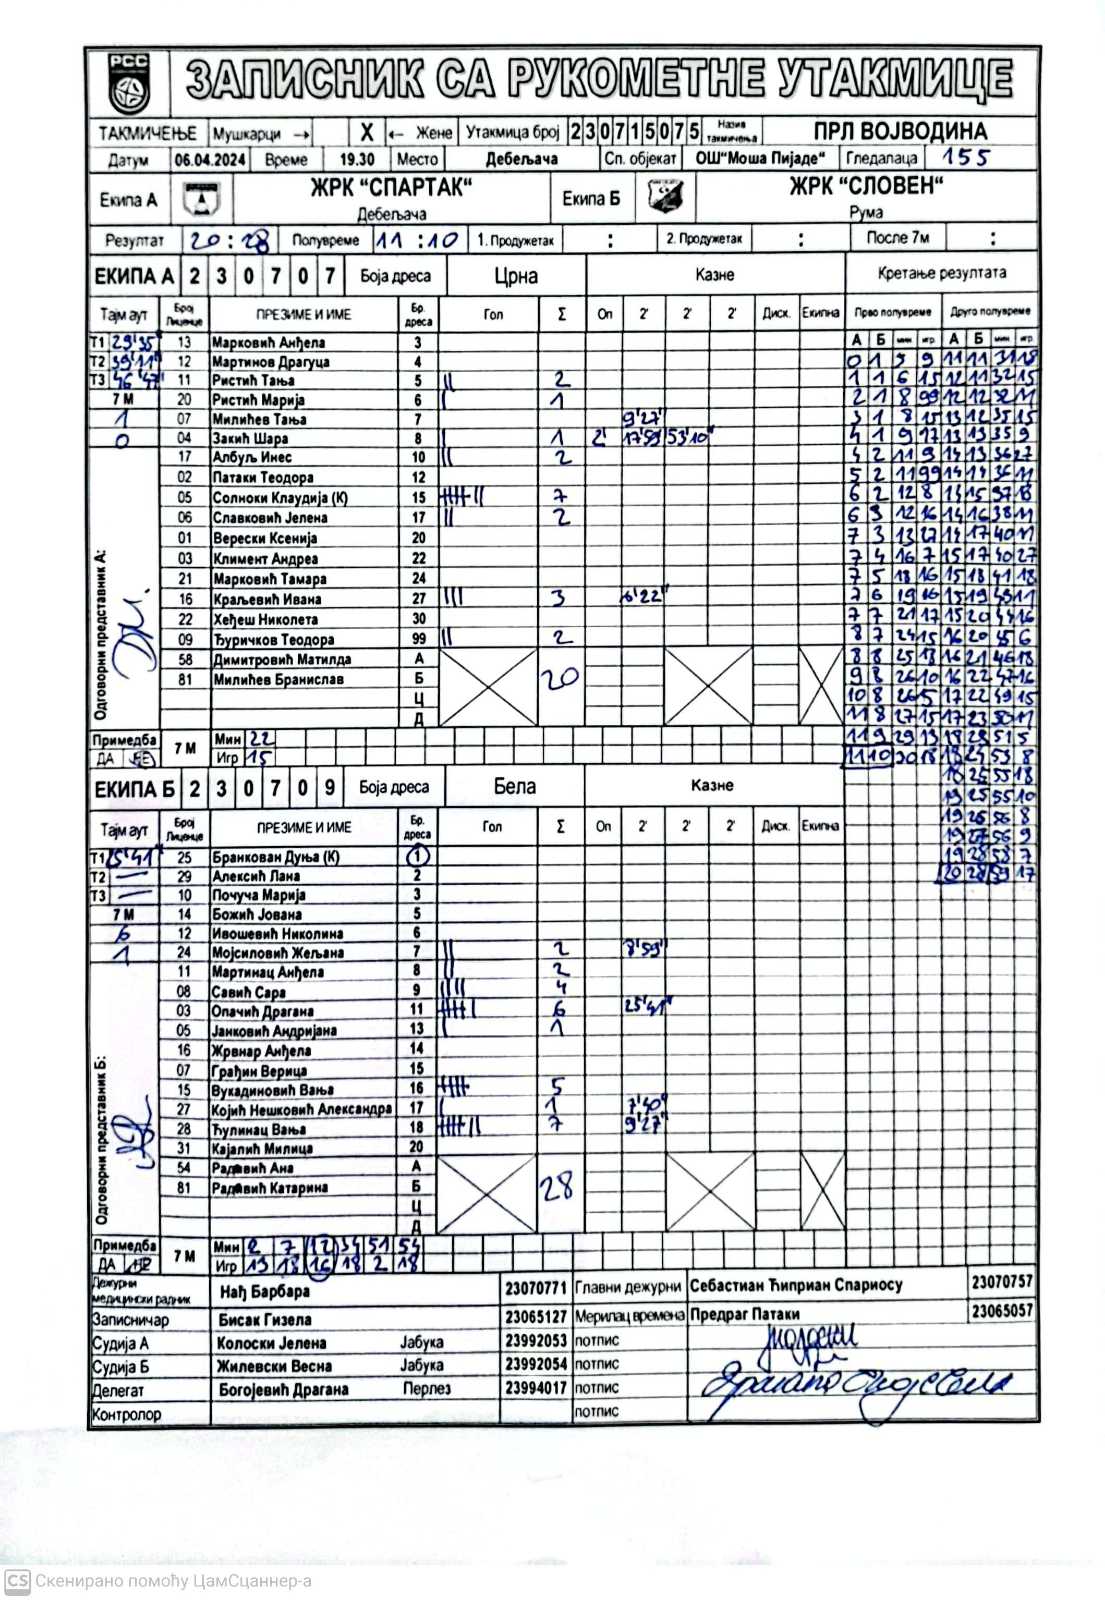 РСС
ЗАПИСНИК СА РУКОМЕТНЕ УТАКМИЦЕ
ТАКМИЧЕЊЕ Мушкарци → X ← Жене Утакмица број 230715075 Назив такмичења ПРЛ ВОЈВОДИНА
Датум 06.04.2024 Време 19.30 Место Дебељача Сп. објекат ОШ"Моша Пијаде" Гледалаца 155
Екипа А ЖРК "СПАРТАК" Дебељача Екипа Б ЖРК "СЛОВЕН" Рума
Резултат 20:28 Полувреме 11:10 1. Продужетак : 2. Продужетак : После 7м :
ЕКИПА А 230707 Боја дреса Црна Казне Кретање резултата
Тајм аут Број Лиценце ПРЕЗИМЕ И ИМЕ Бр. дреса Гол Σ Оп 2' 2' 2' Диск. Екипна Прво полувреме Друго полувреме
А Б мин игр. А Б мин игр.
Т1 29'35" 13 Марковић Анђела 3
Т2 39'11" 12 Мартинов Драгуца 4
Т3 46'47" 11 Ристић Тања 5 || 2
7 М 20 Ристић Марија 6 | 1
1 07 Милићев Тања 7 9'27"
0 04 Закић Шара 8 | 1 2' 17'59" 53'10"
17 Албуљ Инес 10 || 2
02 Патаки Теодора 12
05 Солноки Клаудија (К) 15 7
06 Славковић Јелена 17 || 2
01 Верески Ксенија 20
03 Климент Андреа 22
21 Марковић Тамара 24
16 Краљевић Ивана 27 ||| 3 6'22"
22 Хеђеш Николета 30
09 Ђуричков Теодора 99 || 2
58 Димитровић Матилда А
81 Милићев Бранислав Б 20
Ц
Д
Одговорни представник А:
0 1 3 9 11 11 31 18
1 1 6 15 12 11 32 15
2 1 8 99 12 12 32 11
3 1 8 15 13 12 35 15
4 1 9 17 13 13 35 9
4 2 11 9 14 13 36 27
5 2 11 99 14 14 36 11
6 2 12 8 14 15 37 18
6 3 12 16 14 16 38 11
7 3 13 27 14 17 40 11
7 4 16 7 15 17 40 27
7 5 18 16 15 18 41 18
7 6 19 16 15 19 43 11
7 7 21 17 15 20 44 16
8 7 24 15 16 20 45 6
8 8 25 18 16 21 46 18
9 8 26 10 16 22 47 16
10 8 26 5 17 22 49 15
11 8 27 15 17 23 50 11
11 9 29 13 18 23 51 5
11 10 30 18 18 24 53 8
18 25 55 18
19 25 55 10
19 26 56 8
19 27 56 9
19 28 58 7
20 28 59 17
Примедба ДА НЕ 7 М Мин 22
Игр 15
ЕКИПА Б 230709 Боја дреса Бела Казне
Тајм аут Број Лиценце ПРЕЗИМЕ И ИМЕ Бр. дреса Гол Σ Оп 2' 2' 2' Диск. Екипна
Т1 25'41" 25 Бранкован Дуња (К) 1
Т2 — 29 Алексић Лана 2
Т3 — 10 Почуча Марија 3
7 М 14 Божић Јована 5
6 12 Ивошевић Николина 6
1 24 Мојсиловић Жељана 7 || 2 8'59"
11 Мартинац Анђела 8 || 2
08 Савић Сара 9 |||| 4
03 Опачић Драгана 11 6 25'41"
05 Јанковић Андријана 13 | 1
16 Жрвнар Анђела 14
07 Грађин Верица 15
15 Вукадиновић Вања 16 5
27 Којић Нешковић Александра 17 | 1 7'40"
28 Ћулинац Вања 18 7 9'27"
31 Кајалић Милица 20
54 Радовић Ана А
81 Радовић Катарина Б 28
Ц
Д
Одговорни представник Б:
Примедба ДА НЕ 7 М Мин 2 7 12 34 51 54
Игр 13 18 16 18 2 18
Дежурни медицински радник Нађ Барбара 23070771 Главни дежурни Себастиан Ћиприан Спариосу 23070757
Записничар Бисак Гизела 23065127 Мерилац времена Предраг Патаки 23065057
Судија А Колоски Јелена Јабука 23992053 потпис
Судија Б Жилевски Весна Јабука 23992054 потпис
Делегат Богојевић Драгана Перлез 23994017 потпис
Контролор потпис
CS Скенирано помоћу ЦамСцаннер-а